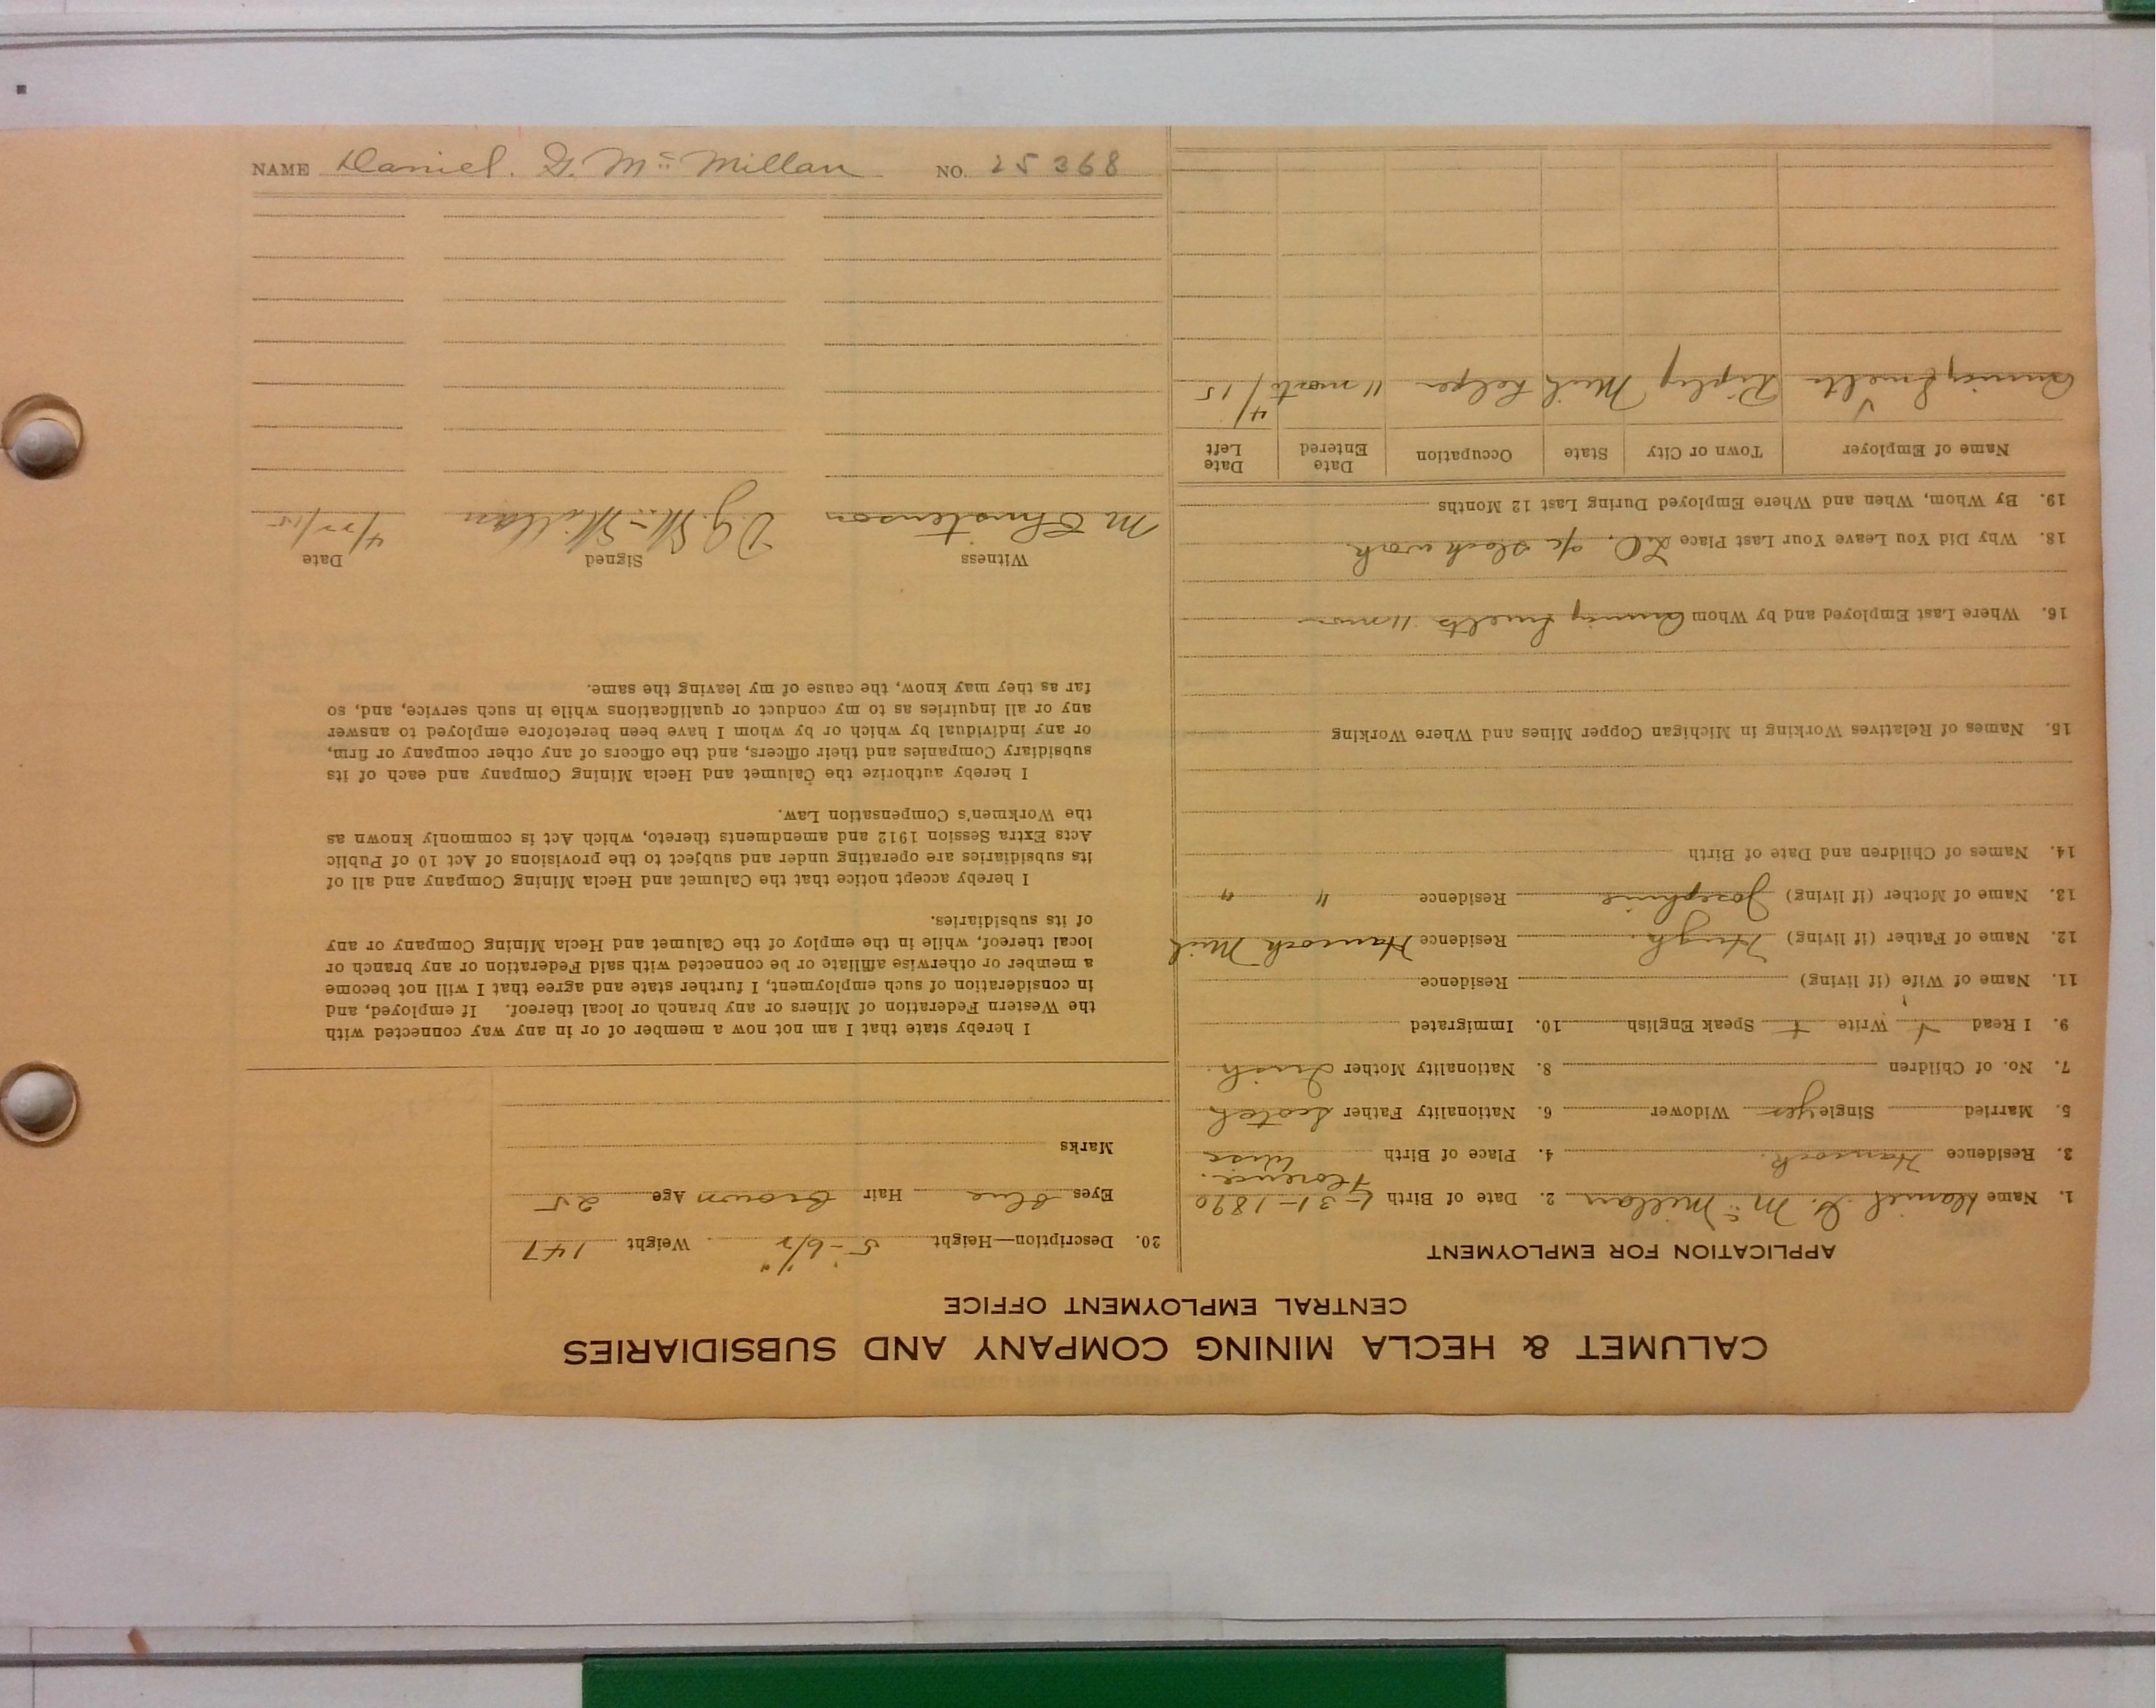 CALUMET & HECLA MINING COMPANY AND SUBSIDIARIES
CENTRAL EMPLOYMENT OFFICE
APPLICATION FOR EMPLOYMENT
1. Name Daniel G. Mc Millan 2. Date of Birth -31-1890
3. Residence Hancock. 4. Place of Birth Florence. Wisc
5. Married Single yes Widower 6. Nationality Father Scotch
7. No. of Children 8. Nationality Mother Irish.
9. I Read Write Speak English 10. Immigrated
11. Name of Wife (if living) Residence
12. Name of Father (if living) Hugh. Residence Hancock Mich
13. Name of Mother (if living) Josephine Residence " "
14. Names of Children and Date of Birth
15. Names of Relatives Working in Michigan Copper Mines and Where Working
16. Where Last Employed and by Whom Quincy Smelts 11 mos
18. Why Did You Leave Your Last Place L.O. a/c slack work
19. By Whom, When and Where Employed During Last 12 Months
Name of Employer Town or City State Occupation Date Entered Date Left
Quincy Smelter Ripley Mich helper 11 months 4/15
20. Description—Height 5'-6 1/2" Weight 147
Eyes blue Hair brown Age 25
Marks
I hereby state that I am not now a member of or in any way connected with
the Western Federation of Miners or any branch or local thereof. If employed, and
in consideration of such employment, I further state and agree that I will not become
a member or otherwise affiliate or be connected with said Federation or any branch or
local thereof, while in the employ of the Calumet and Hecla Mining Company or any
of its subsidiaries.
I hereby accept notice that the Calumet and Hecla Mining Company and all of
its subsidiaries are operating under and subject to the provisions of Act 10 of Public
Acts Extra Session 1912 and amendments thereto, which Act is commonly known as
the Workmen's Compensation Law.
I hereby authorize the Calumet and Hecla Mining Company and each of its
subsidiary Companies and their officers, and the officers of any other company or firm,
or any individual by which or by whom I have been heretofore employed to answer
any or all inquiries as to my conduct or qualifications while in such service, and, so
far as they may know, the cause of my leaving the same.
Witness Signed Date
M Christenson D.G. Mc Millan 4/22/15
NAME Daniel. G. Mc Millan NO. 25368